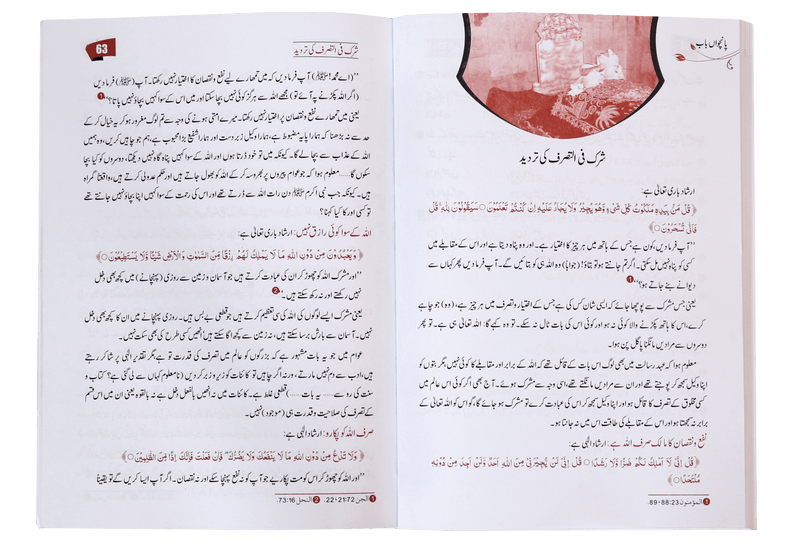 پانچواں باب
شرک فی التصرف کی تردید
ارشاد باری تعالیٰ ہے:
﴿ قُلْ مَنْۢ بِيَدِهٖ مَلَكُوْتُ كُلِّ شَيْءٍ وَّهُوَ يُجِيْرُ وَلَا يُجَارُ عَلَيْهِ اِنْ كُنْتُمْ تَعْلَمُوْنَ ۝ سَيَقُوْلُوْنَ لِلّٰهِ قُلْ
فَاَنّٰى تُسْحَرُوْنَ ۝ ﴾
”آپ فرما دیں، کون ہے جس کے ہاتھ میں ہر چیز کا اختیار ہے۔ اور وہ پناہ دیتا ہے اور اس کے مقابلے میں
کسی کو پناہ نہیں مل سکتی۔ اگر تم جانتے ہو تو بتاؤ! (جوابا) وہ اللہ ہی کو بتائیں گے۔ آپ فرما دیں پھر کہاں سے
دیوانے بنے جاتے ہو؟“ ❶
یعنی جس مشرک سے پوچھا جائے کہ ایسی شان کس کی ہے جس کے اختیار و تصرف میں ہر چیز ہے، (وہ) جو چاہے
کرے، اس کا ہاتھ پکڑنے والا کوئی نہ ہو اور کوئی اس کی بات ٹال نہ سکے۔ تو وہ کہے گا: اللہ تعالیٰ ہی ہے۔ تو پھر
دوسروں سے مرادیں مانگنا پاگل پن ہوا۔
معلوم ہوا کہ عہد رسالت میں بھی لوگ اس بات کے قائل تھے کہ اللہ کے برابر اور مقابلے کا کوئی نہیں مگر بتوں کو
اپنا وکیل سمجھ کر پوجتے تھے اور ان سے مرادیں مانگتے تھے، اسی وجہ سے مشرک ہوئے۔ آج بھی اگر کوئی اس عالم میں
کسی مخلوق کے تصرف کا قائل ہو اور اپنا وکیل سمجھ کر اس کی عبادت کرے تو مشرک ہو جائے گا، گو اس کو اللہ تعالیٰ کے
برابر نہ سمجھتا ہو اور اس کے مقابلے کی طاقت اس میں نہ جانتا ہو۔
نفع و نقصان کا مالک صرف اللہ ہے: ارشاد الٰہی ہے:
﴿ قُلْ اِنِّيْ لَاۤ اَمْلِكُ لَكُمْ ضَرًّا وَّلَا رَشَدًا ۝ قُلْ اِنِّيْ لَنْ يُّجِيْرَنِيْ مِنَ اللّٰهِ اَحَدٌ وَّلَنْ اَجِدَ مِنْ دُوْنِهٖ
مُلْتَحَدًا ۝ ﴾
❶ المؤمنون 88:23، 89.
شرک فی التصرف کی تردید
63
”(اے محمد! ﷺ) آپ فرما دیں کہ میں تمھارے لیے نفع و نقصان کا اختیار نہیں رکھتا۔ آپ (ﷺ) فرما دیں
(اگر اللہ پکڑنے پہ آئے تو) مجھے اللہ سے ہرگز کوئی نہیں بچا سکتا اور میں اس کے سوا کہیں بچاؤ نہیں پاتا؟“ ❶
یعنی میں تمھارے نفع و نقصان پر اختیار نہیں رکھتا۔ میرے امتی ہونے کی وجہ سے تم لوگ مغرور ہو کر یہ خیال کر کے
حد سے نہ بڑھنا کہ ہمارا پایہ مضبوط ہے، ہمارا وکیل زبردست اور ہمارا شفیع بڑا محبوب ہے، ہم جو چاہیں کریں، وہ ہمیں
اللہ کے عذاب سے بچالے گا۔ کیونکہ میں تو خود ڈرتا ہوں اور اللہ کے سوا کہیں پناہ گاہ نہیں دیکھتا، دوسروں کو کیا بچا
سکوں گا...... معلوم ہوا کہ جو عوام پیروں پر بھروسہ کر کے اللہ کو بھول جاتے ہیں اور حکم عدولی کرتے ہیں، واقعتا گمراہ
ہیں۔ کیونکہ جب نبی اکرم ﷺ دن رات اللہ سے ڈرتے تھے اور اس کی رحمت کے سوا کہیں اپنا بچاؤ نہیں جانتے تھے
تو کسی اور کا کیا کہنا؟
اللہ کے سوا کوئی رازق نہیں: ارشاد باری تعالیٰ ہے:
﴿ وَيَعْبُدُوْنَ مِنْ دُوْنِ اللّٰهِ مَا لَا يَمْلِكُ لَهُمْ رِزْقًا مِّنَ السَّمٰوٰتِ وَالْاَرْضِ شَيْـًٔا وَّلَا يَسْتَطِيْعُوْنَ ۝ ﴾
”اور مشرک اللہ کو چھوڑ کر ان کی عبادت کرتے ہیں جو آسمان و زمین سے روزی (پہنچانے) میں کچھ بھی دخل
نہیں رکھتے اور نہ رکھ سکتے ہیں۔“ ❷
یعنی مشرک ایسے لوگوں کی اللہ کی سی تعظیم کرتے ہیں جو قطعی بے بس ہیں۔ روزی پہنچانے میں ان کا کچھ بھی دخل
نہیں۔ آسمان سے بارش برسا سکتے ہیں، نہ زمین سے کچھ اگا سکتے ہیں انھیں کسی طرح کی بھی سکت نہیں۔
عوام میں جو یہ بات مشہور ہے کہ بزرگوں کو عالم میں تصرف کی قدرت تو ہے مگر تقدیر الٰہی پر شاکر رہتے
ہیں، ادب سے دم نہیں مارتے، ورنہ اگر چاہیں تو کائنات کو زیر و زبر کر دیں (نا معلوم کہاں سے لی گئی ہے؟ کتاب و
سنت کی رو سے ...... یہ بات ......) قطعی غلط ہے۔ کائنات میں نہ انھیں بالفعل دخل ہے نہ بالقوہ یعنی ان میں اس قسم
کے تصرف کی صلاحیت و قدرت ہی (موجود) نہیں۔
صرف اللہ کو پکارو: ارشاد الٰہی ہے:
﴿ وَلَا تَدْعُ مِنْ دُوْنِ اللّٰهِ مَا لَا يَنْفَعُكَ وَلَا يَضُرُّكَ ۚ فَاِنْ فَعَلْتَ فَاِنَّكَ اِذًا مِّنَ الظّٰلِمِيْنَ ۝ ﴾
”اور اللہ کو چھوڑ کر اس کو مت پکاریے جو آپ کو نفع پہنچا سکے اور نہ نقصان۔ اگر آپ ایسا کریں گے تو یقیناً
❶ الجن 21:72، 22. ❷ النحل 73:16.